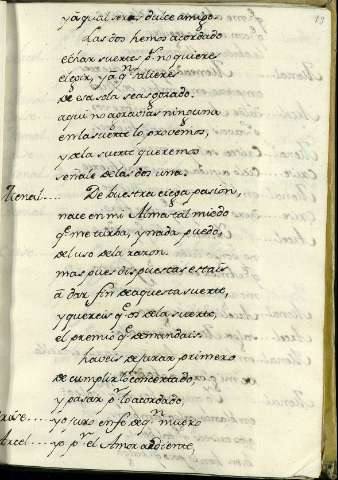 19
ya qual eres, dulce amigo.
Las dos hemos acordado
echar suertes pr. no quiere
elegir, ya qn. salieres
de esa sola seas gozado.
aqui no agravias ninguna
en la suerte lo provemos,
y de la suerte queremos
señale de las dos una.
Menal.... De buestra ciega pasion,
nace en mi Alma tal miedo
qe. me turba, y nada puedo,
del uso de la razon.
mas pues dispuestas estais
a dar fin de aquesta suerte,
y quereis qe. os de la suerte,
el premio qe. demandais.
haveis de jurar primero
de cumplir lo concertado,
y pasar pr. lo acordado,
yo juro en fe de qn. muero
yo pr. el Amor ardiente,